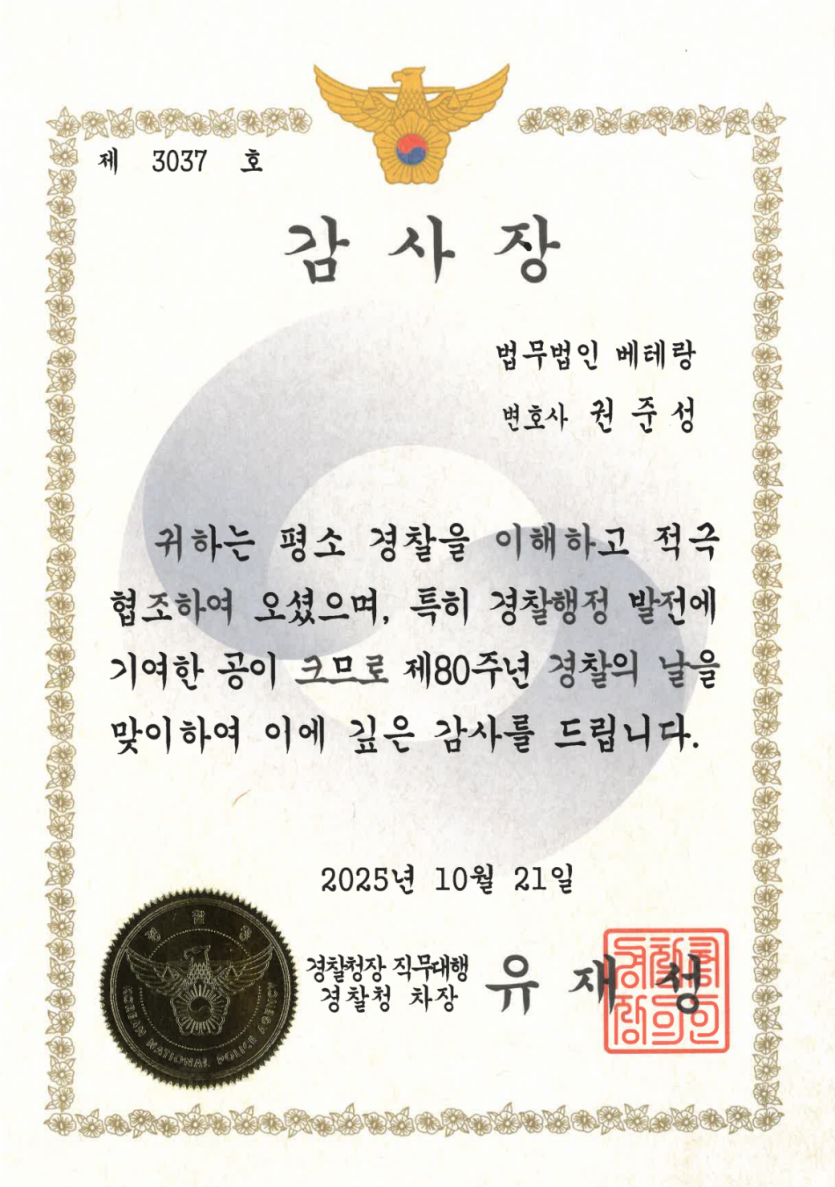 제 3037 호
감 사 장
법무법인 베테랑
변호사 권 준 성
귀하는 평소 경찰을 이해하고 적극
협조하여 오셨으며, 특히 경찰행정 발전에
기여한 공이 크므로 제80주년 경찰의 날을
맞이하여 이에 깊은 감사를 드립니다.
2025년 10월 21일
경찰청장 직무대행
경찰청 차장
유 재 성
경찰청
KOREAN NATIONAL POLICE AGENCY
경찰청장의인